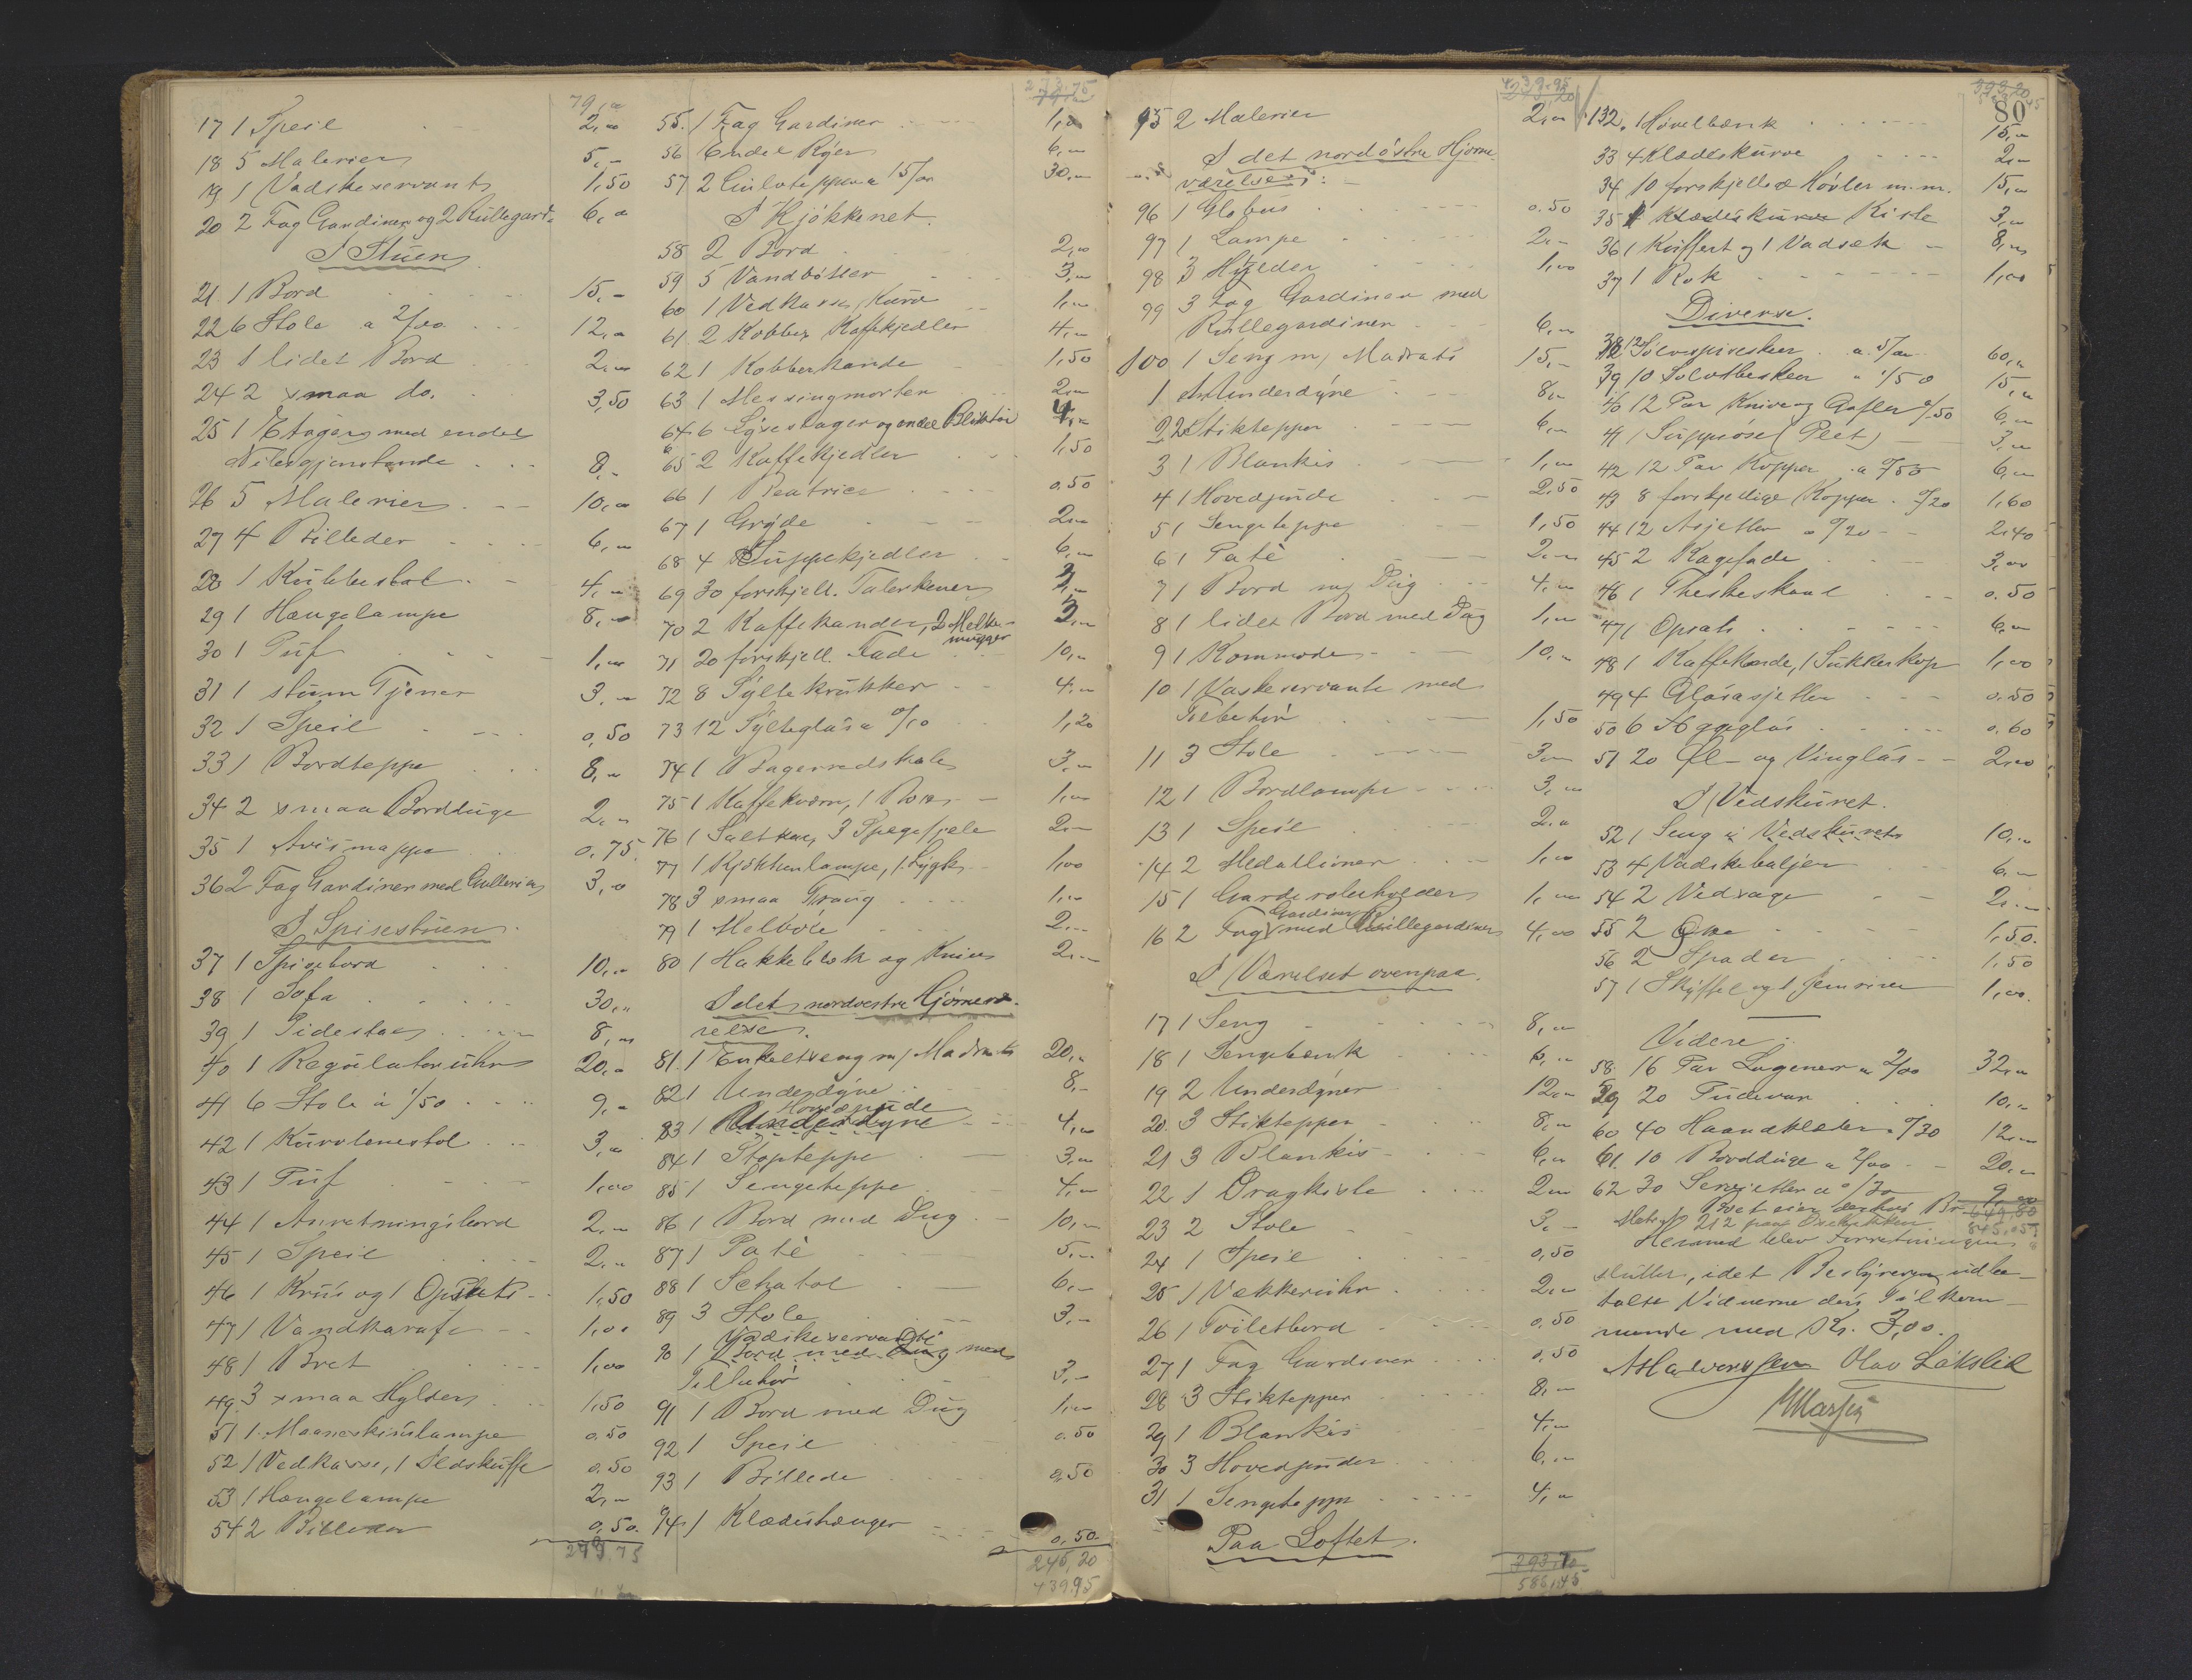 79,
17 1 Speil 2,00
18 5 Malerier 5,-
19 1 Vadskeservant 1,50
20 2 Fag Gardiner og 2 Rullegard. 6,00
I Stuen
21 1 Bord 15,-
22 6 Stole a 2/00 12,00
23 1 lidet Bord 2,00
24 2 smaa do. 3,50
25 1 Etagere med endel
Nipsgjenstande 8,-
26 5 Malerier 10,00
27 4 Billeder 6,00
28 1 Rullestol 4,00
29 1 Hængelampe 8,00
30 1 Puf 1,00
31 1 stum Tjener 3,00
32 1 Speil 0,50
33 1 Bordteppe 8,00
34 2 smaa Bordduge 2,00
35 1 Avismappe 0,75
36 2 Fag Gardiner med Gallerier 3,00
I Spisestuen.
37 1 Spisebord 10,00
38 1 Sofa 30,00
39 1 Pidestal 8,00
40 1 Regulatoruhr 20,00
41 6 Stole à 1/50 9,00
42 1 Kurvlenestol 3,00
43 1 Puf 1,00
44 1 Anretningsbord 2,00
45 1 Speil 2,00
46 1 Krus og 1 Opsats 1,50
47 1 Vandkaraffe 1,00
48 1 Bret 1,00
49 3 smaa Hylder 1,50
51 1 Maaneskinslampe 0.50
52 1 Vedkasse, 1 Ildskuffe 0.50
53 1 Hængelampe 2,00
54 2 Billeder 0,50.
273.75
273.75
55. 1 Fag Gardiner 1,00
56 Endel Ryer 6,00
57 2 Gulvtepper a 15/00 30,00
I Kjökkenet.
58 2 Bord 2,00
59 5 Vandbötter 3,00
60 1 Vedkasse, Kurv 1,00
61 2 Kobber Kaffekjedler 4,00
62 1 Kobberkande 1,50
63 1 Messingmorter 2,00
64 6 Lysestager og endel Bliktöi 4,00
65 2 Kaffekjedler 1,50
66 1 Beatrice 0.50
67 1 Gryde 2,00
68 4 Suppekjedler 6,00
69 30 forskjell. Talerkener
70 2 Kaffekander, 2 Melke-
mugger 3,00
71 20 forskjell. Fade 10,00
72 8 Syltekrukker 4,00
73 12 Sylteglas a 0/10 1,20
74 1 Bageredskab 3,00
75 1 Kaffekværn, 1 1,00
76 1 Saltkar, 3 Spegefjele 2,-
77 1 Kjökkenlampe, 1 Lygte 1,00
78 3 smaa Traug 1,00
79 1 Melböle 2,-
80 1 Hakkeblok og Kniv 2,-
I det nordvestre Hjörnevæ-
relse.
81. 1 Enkeltseng m/ Madrats 20,00
82 1 Underdyne 8,-
83 1 Hovedpude Underdyne 4,00
84 1 Stopteppe 3,00
85 1 Sengeteppe 4,00
86 1 Bord med Dug 10,-
87 1 Patè 5,-
88 1 Schatol 6,-
89 3 Stole 3,-
90 1 Vadskeservant Bord med Dug med
Tilbehör 3,-
91 1 Bord med Dug 1,00
92 1 Speil 0.50
93 1 Billede 0,50
94. 1 Klædeshænger 0,50.
246,20
439.95
439.95
95 2 Malerier 2,00
I det nordöstre Hjörne
værelse:
96 1 Globus 0.50
97 1 Lampe 2,-
98 3 Hylder 1,00
99 3 Fag Gardiner med
Rullegardiner 6,00
100 1 Seng m/ Madrats 15,-
1 Underdyne 8,00
2 2 Stiktepper 6,00
3 1 Blankis 1,00
4 1 Hovedpude 2,50
5 1 Sengeteppe 1,50
6 1 Patè 2,-
7 1 Bord m/ Dug 4,00
8 1 lidet Bord med Dug 1,00
9 1 Kommode 10,00
10 1 Vaskeservante med
Tilbehör 1,50
11 3 Stole 3,00
12 1 Bordlampe 3,00
13 1 Speil 2,00
14 2 Medallioner 1,00
15 1 Garderobeholder 1,00
16 2 Fag Gardiner med Rullegardiner 4,00
I Værelset ovenpaa.
17 1 Seng 8,00
18 1 Sengebænk 6,00
19 2 Underdyner 12,00
20. 3 Stiktepper 8,00
21 3 Blankis 6,00
22 1 Dragkiste 2,00
23 2 Stole 3,-
24 1 Speil 0,50
25 1 Vækkeruhr 2,00
26 1 Toiletbord 0,50
27 1 Fag Gardiner 0,50
28 3 Stiktepper 8,00
29 1 Blankis 4,00
30 3 Hovedpuder 6,00
31 1 Sengeteppe 4,00
Paa Loftet.
586,45
80
132. 1 Hövelbænk 15,00
33 4 Klædeskurve 2,-
34 10 forskjellige Høvler m.m. 15,00
35 1 Klædeskurv Kiste 3,00
36 1 Kuffert og 1 Vadsæk 8,00
37 1 Rok 1,00
Diverse.
38 12 Sölvspiseskeer a 5/00 60,00
39 10 Sölvtheskeer a 1/50 15,00
40 12 Par Knive og Gafler a 0/50 6,00
41 1 Suppeöse (Plet) 3,00
42 12 Par Kopper a 0/50 6,00
43 8 forskjellige Kopper 0/20 1,60
44 12 Asjetter a 0/20 2,40
45 2 Kagefade 3,00
46 1 Theskeskaal 0.50
47 1 Opsats 6,00
48 1 Kaffekande, 1 Sukkerkop 1,00
49 4 Glasasjetter 0.50
50 6 Æggeglas 0.60
51 20 Øl- og Vinglas 2,00
I Vedskuret.
52 1 Seng i Vedskuret 10,00
53 4 Vadskebaljer 6,00
54 2 Vedsage 2,-
55 2 Økse 1,50.
56 2 Spader 1,50
57 1 Skyffel og 1 Jernrive 1,00.
Videre:
58. 16 Par Lagener a 2/00 32,00
59 20 Pudevar 10,-
60 40 Haandklæder a 0/30 12,00
61. 10 Bordduge a 2/00 20,00
62 30 Servietter a 0/30 9,00
Boet eier derhos
212 paa
845,05
Hermed blev Forretningen
sluttet, idet Bestyreren udbe-
talte Vidnerne deres Tilkom-
mende med Kr. 3,00.
A Halvorsen Olav Løkslid